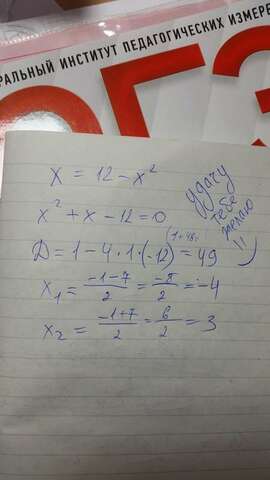 РАЛЬНЫЙ ИНСТИТУТ ПЕДАГОГИЧЕСКИХ ИЗМЕРЕ
ОГЭ
x = 12 - x²
x² + x - 12 = 0
Д = 1 - 4 · 1 · (-12) = 49
(1+48)
x₁ = (-1-7)/2 = -8/2 = -4
x₂ = (-1+7)/2 = 6/2 = 3
удачу
тебе
желаю
!!